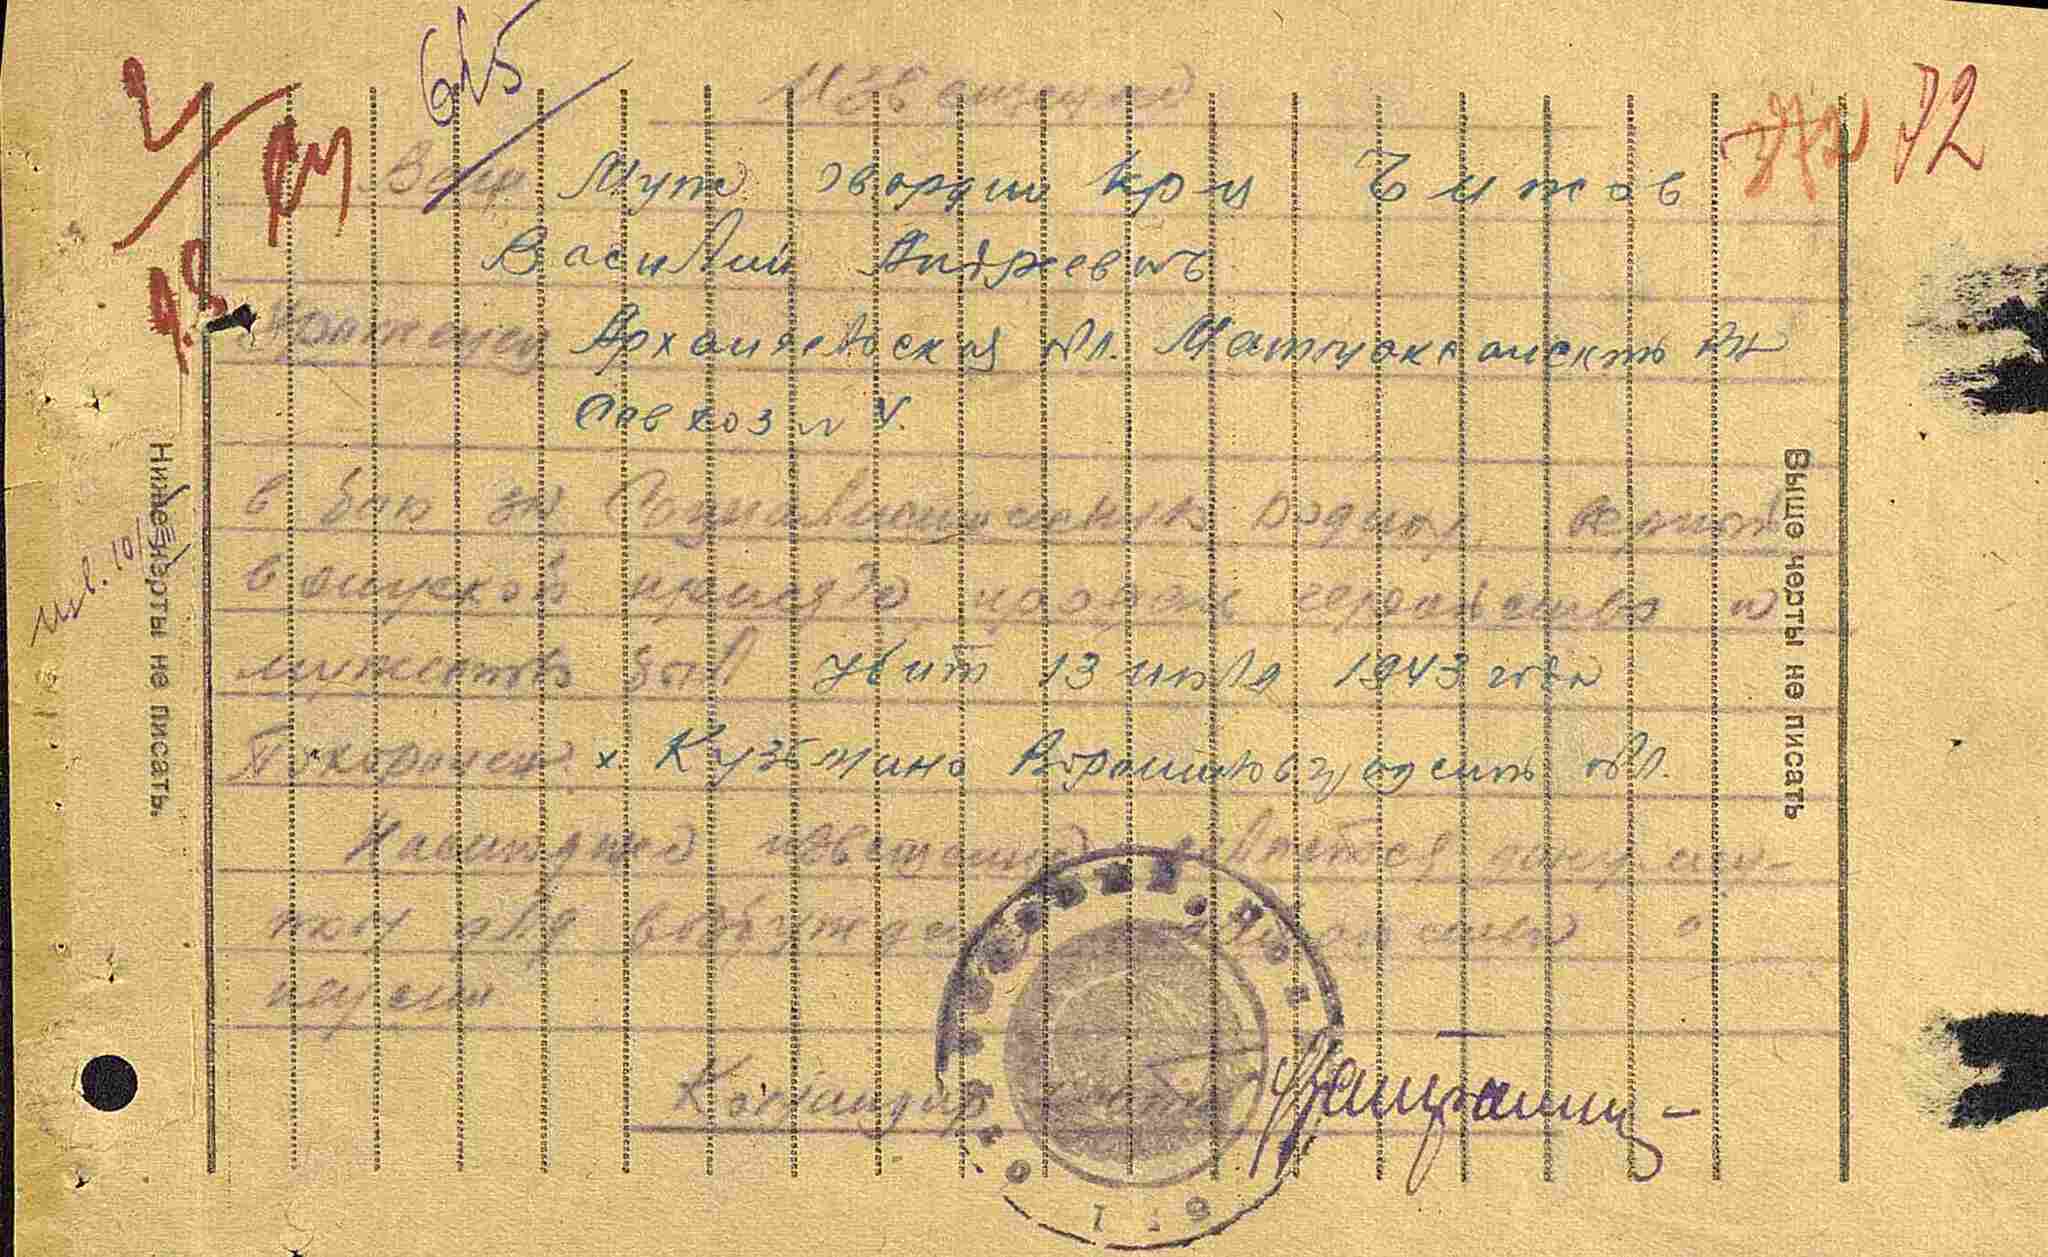 615
72
Извещение
Ваш Муж гвардии кр-ц Чижов
Василий Андреевич
Уроженец Архангельская обл.
Совхоз
в бою за Социалистическую Родину, верный
воинской присяге, проявив геройство и
мужество был убит 13 июля 1943 года
Похоронен х Кузьмино Ворошиловградская обл.
Настоящее извещение является докумен-
том для возбуждения ходатайства о
пенсии
Командир части
Ниже черты не писать.
Выше черты не писать